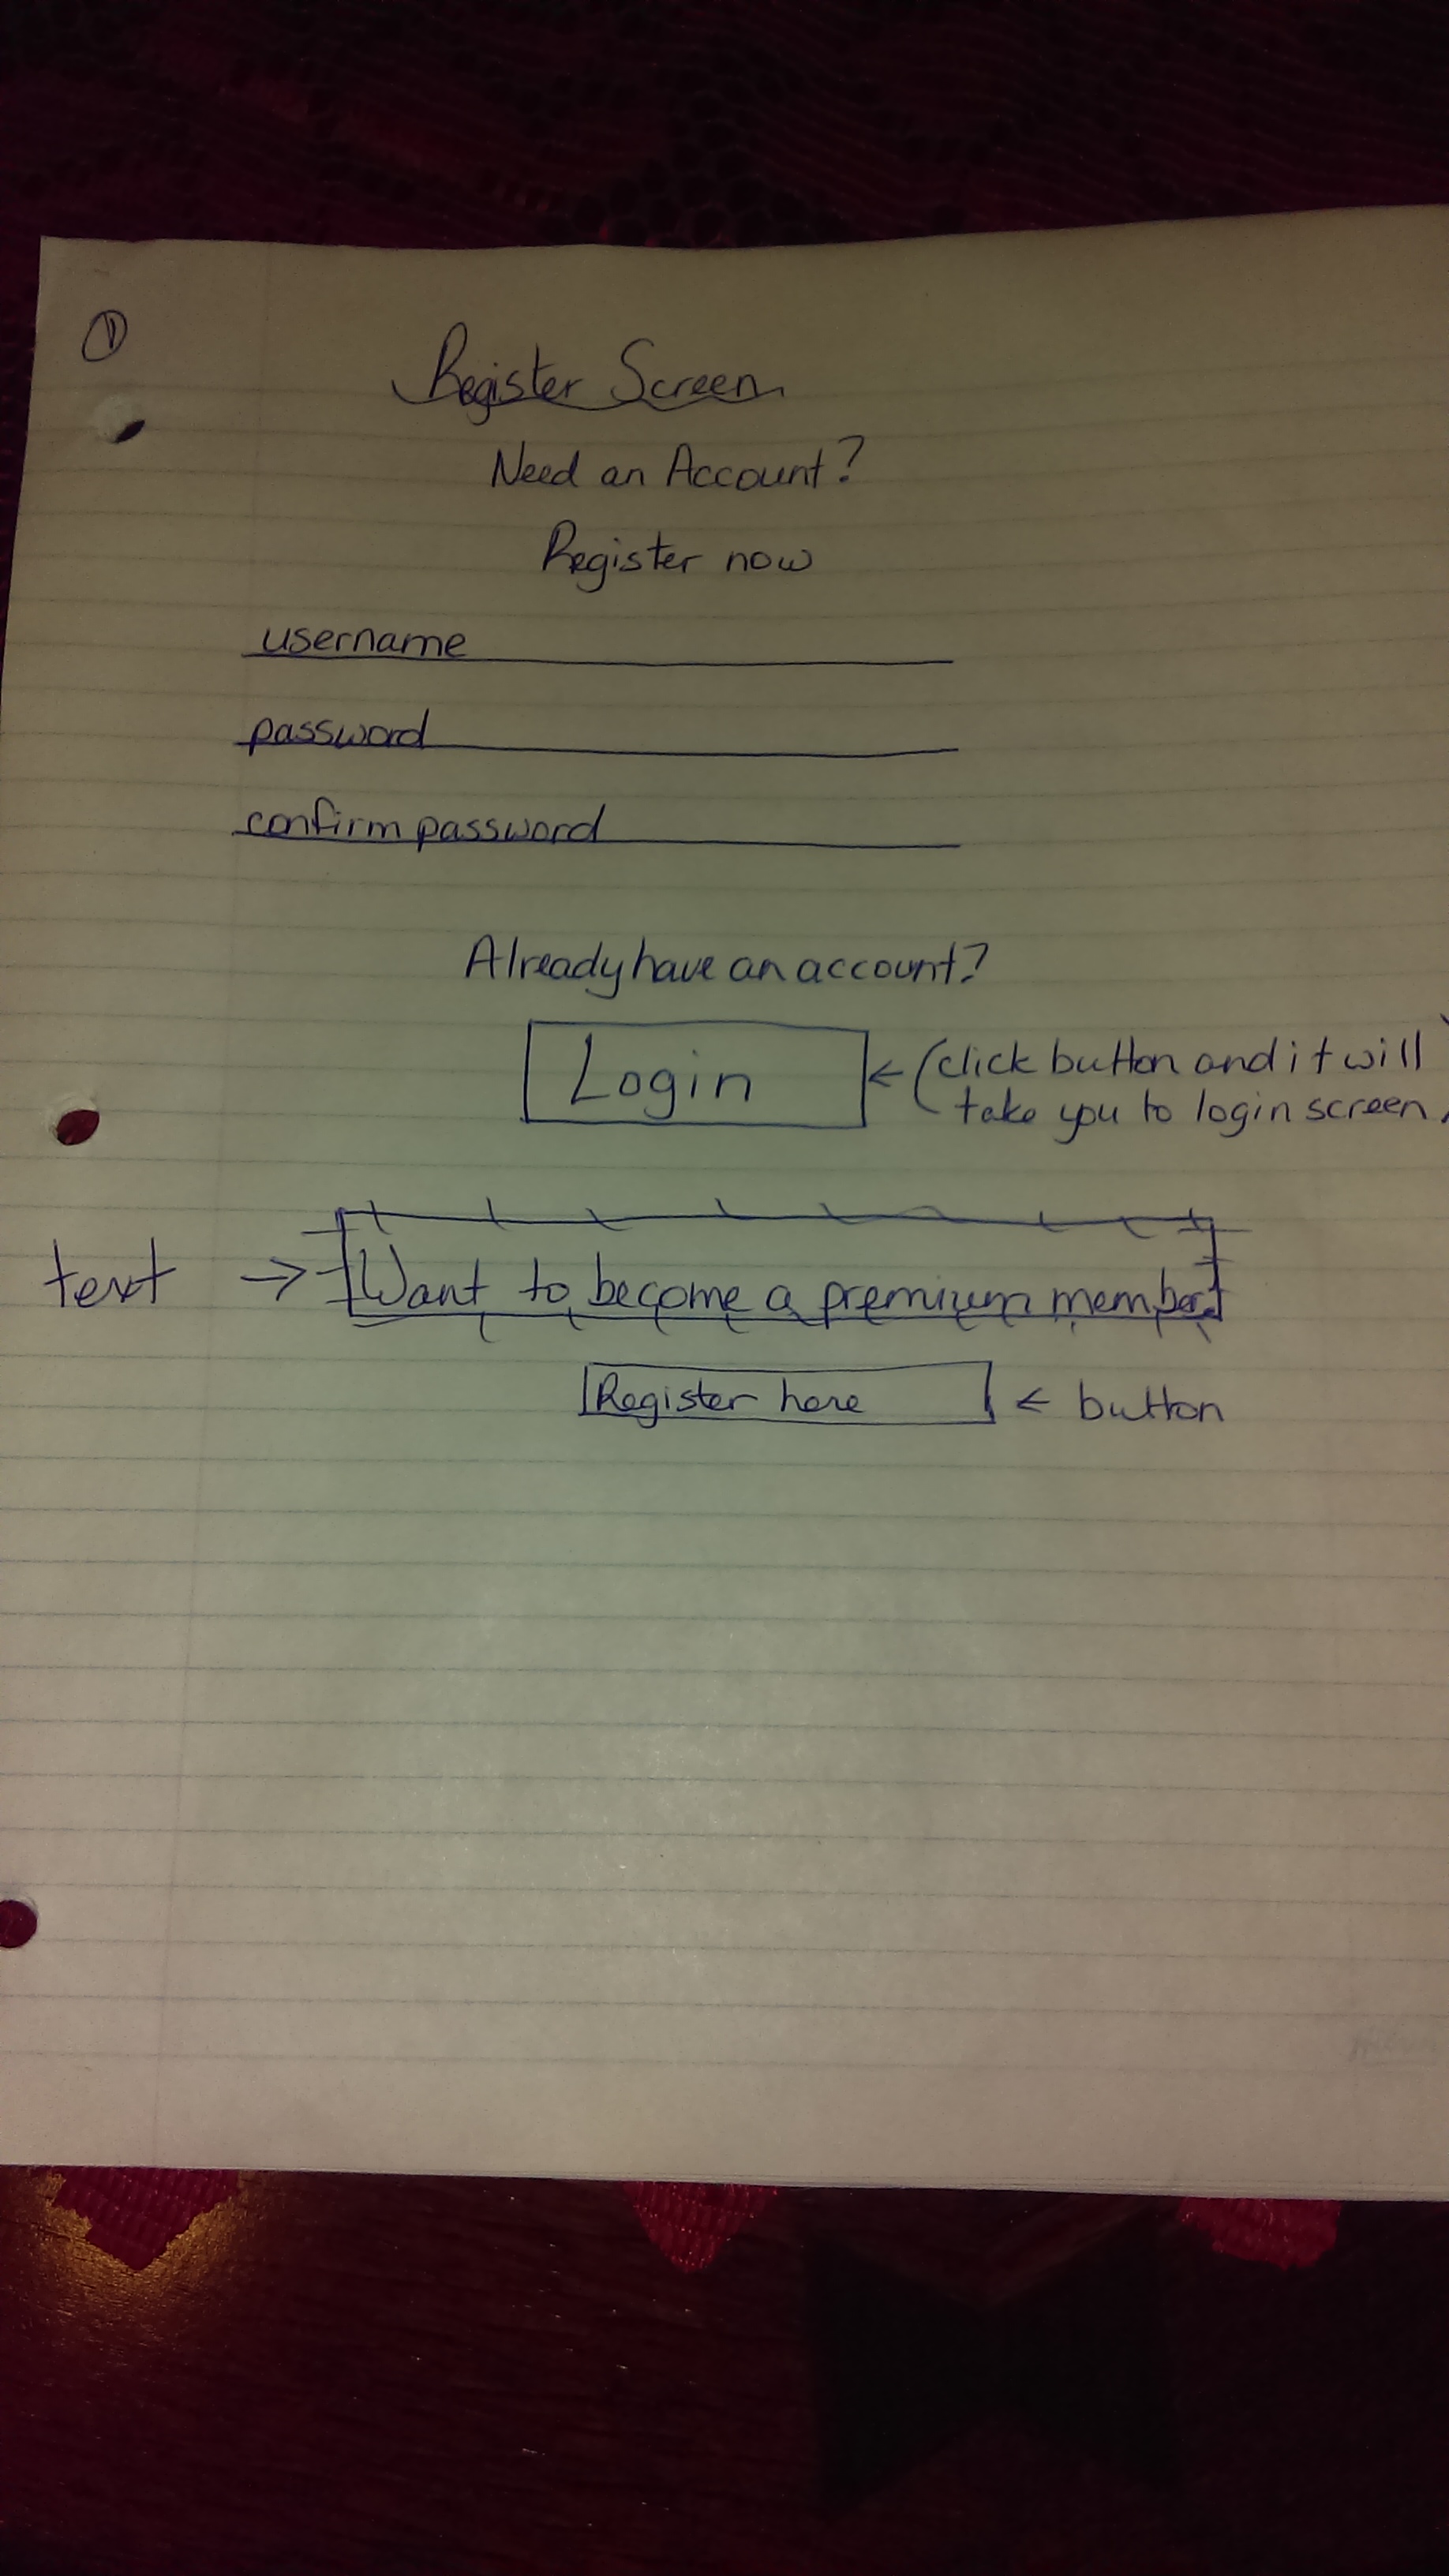 1
Register Screen
Need an Account?
Register now
username
password
confirm password
Already have an account?
Login ← (click button and it will
take you to login screen)
text → Want to become a premium member?
Register here ← button